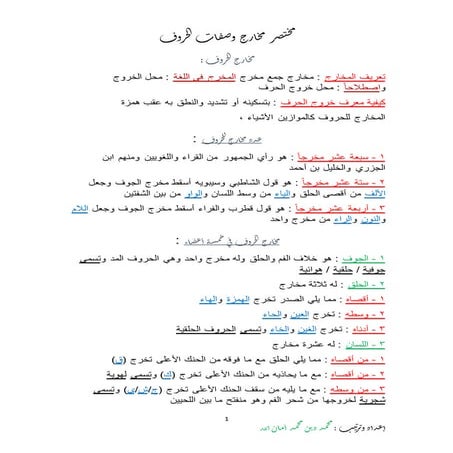 مختصر مخارج وصفات الحروف
مخارج الحروف :
تعريف المخارج : مخارج جمع مخرج المخرج في اللغة : محل الخروج
وإصطلاحاً : محل خروج الحرف
كيفية معرف خروج الحرف : بتسكينه أو تشديد والنطق به عقب همزة
المخارج للحروف كالموازين الأشياء ،
عدد مخارج الحروف :
١ - سبعة عشر مخرجاً : هو رأي الجمهور من القراء واللغويين ومنهم ابن
الجزري والخليل بن أحمد
٢ - ستة عشر مخرجاً : هو قول الشاطبي وسيبويه أسقط مخرج الجوف وجعل
الألف من أقصى الحلق والياء من وسط اللسان والواو من بين الشفتين
٣ - أربعة عشر مخرجاً : هو قول قطرب والفراء أسقط مخرج الجوف وجعل اللام
والنون والراء من مخرج واحد
مخارج الحروف في خمسة اعضاء :
١ - الجوف : هو خلاف الفم والحلق وله مخرج واحد وهي الحروف المد وتسمى
جوفية / حلقية / هوائية
٢ - الحلق : له ثلاثة مخارج
١ - أقصاه : مما يلي الصدر تخرج الهمزة والهاء
٢ - وسطه : تخرج العين والحاء
٣ - أدناه : تخرج الغين والخاء وتسمى الحروف الحلقية
٣ - اللسان : له عشرة مخارج
١ - من أقصاه : مما يلي الحلق مع ما فوقه من الحنك الأعلى تخرج (ق)
٢ - من أقصاه : مع ما يحاذيه من الحنك الأعلى تخرج (ك) وتسمى لهوية
٣ - من وسطه : مع ما يليه من سقف الحنك الأعلى تخرج (ج/ش/ي) وتسمى
شجرية لخروجها من شجر الفم وهو منفتح ما بين اللحيين
1
إعداد وترتيب : محمد دين محمد أمان الله